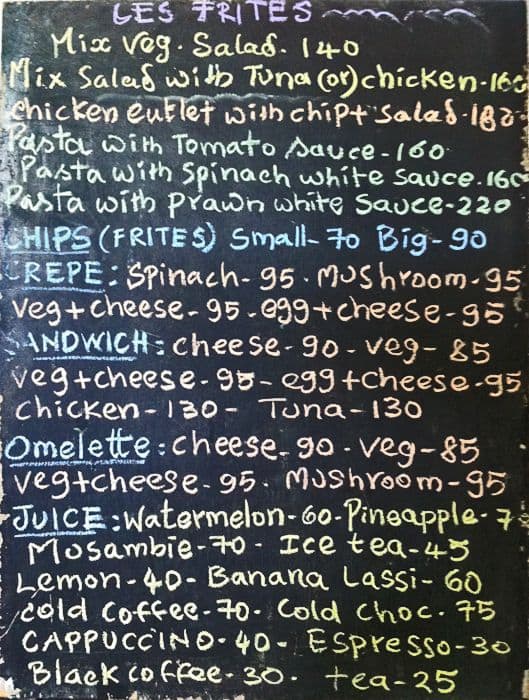 LES FRITES
Mix Veg. Salad. 140
Mix Salad with Tuna (or) chicken-160
chicken cutlet with chip+ salad.180
Pasta with Tomato Sauce-160
Pasta with Spinach white sauce.160
Pasta with prawn white Sauce-220
CHIPS (FRITES) Small-70 Big-90
CREPE: Spinach-95. Mushroom-95
veg+cheese-95.egg+cheese-95
SANDWICH: cheese-90-veg-85
veg+cheese-95-egg+cheese-95
chicken-130- Tuna-130
Omelette: cheese-90.veg-85
veg+cheese-95. Mushroom-95
JUICE: Watermelon-60-Pineapple-
Mosambie-70- Ice tea-45
Lemon-40- Banana Lassi-60
cold coffee-70- Cold choc. 75
CAPPUCCINO-40- Espresso-30
Black coffee-30. tea-25